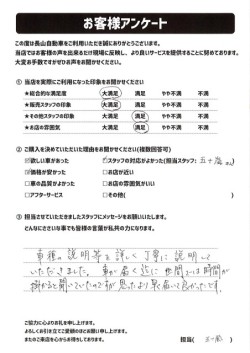 お客様アンケート
この度は長山自動車をご利用いただき誠にありがとうございます。
当店ではお客様の声を出来るだけ現場に反映し、より良いサービスを提供することに努めております。
大変お手数ですがぜひお声をお聞かせください。
① 当店を実際にご利用になった印象をお聞かせください
★総合的な満足度 大満足 満足 やや不満 不満
★販売スタッフの印象 大満足 満足 やや不満 不満
★その他スタッフの印象 大満足 満足 やや不満 不満
★お店の雰囲気 大満足 満足 やや不満 不満
② ご購入を決めていただいた理由をお聞かせください(複数回答可)
☑欲しい車があった ☑スタッフの対応がよかった(担当スタッフ: 五十嵐さん)
☑価格が安かった □お店が近い
□車の品質がよかった □お店の雰囲気がいい
□アフターサービス □その他( )
③ 担当させていただきましたスタッフにメッセージをお願いいたします。
どんなにささいな事でも皆様の言葉が私共の力になります。
車種の説明等を詳しく丁寧に説明して
いただきました。車が届く迄に世間では時間が
掛かると聞いていたのですが思ったより早く届いて良かったです。
ご協力に心よりお礼を申し上げます。
よろしくお引き立てご愛顧のほどお願い申し上げます。
またのご来店を心からお待ちしております。
担当( 五十嵐 )